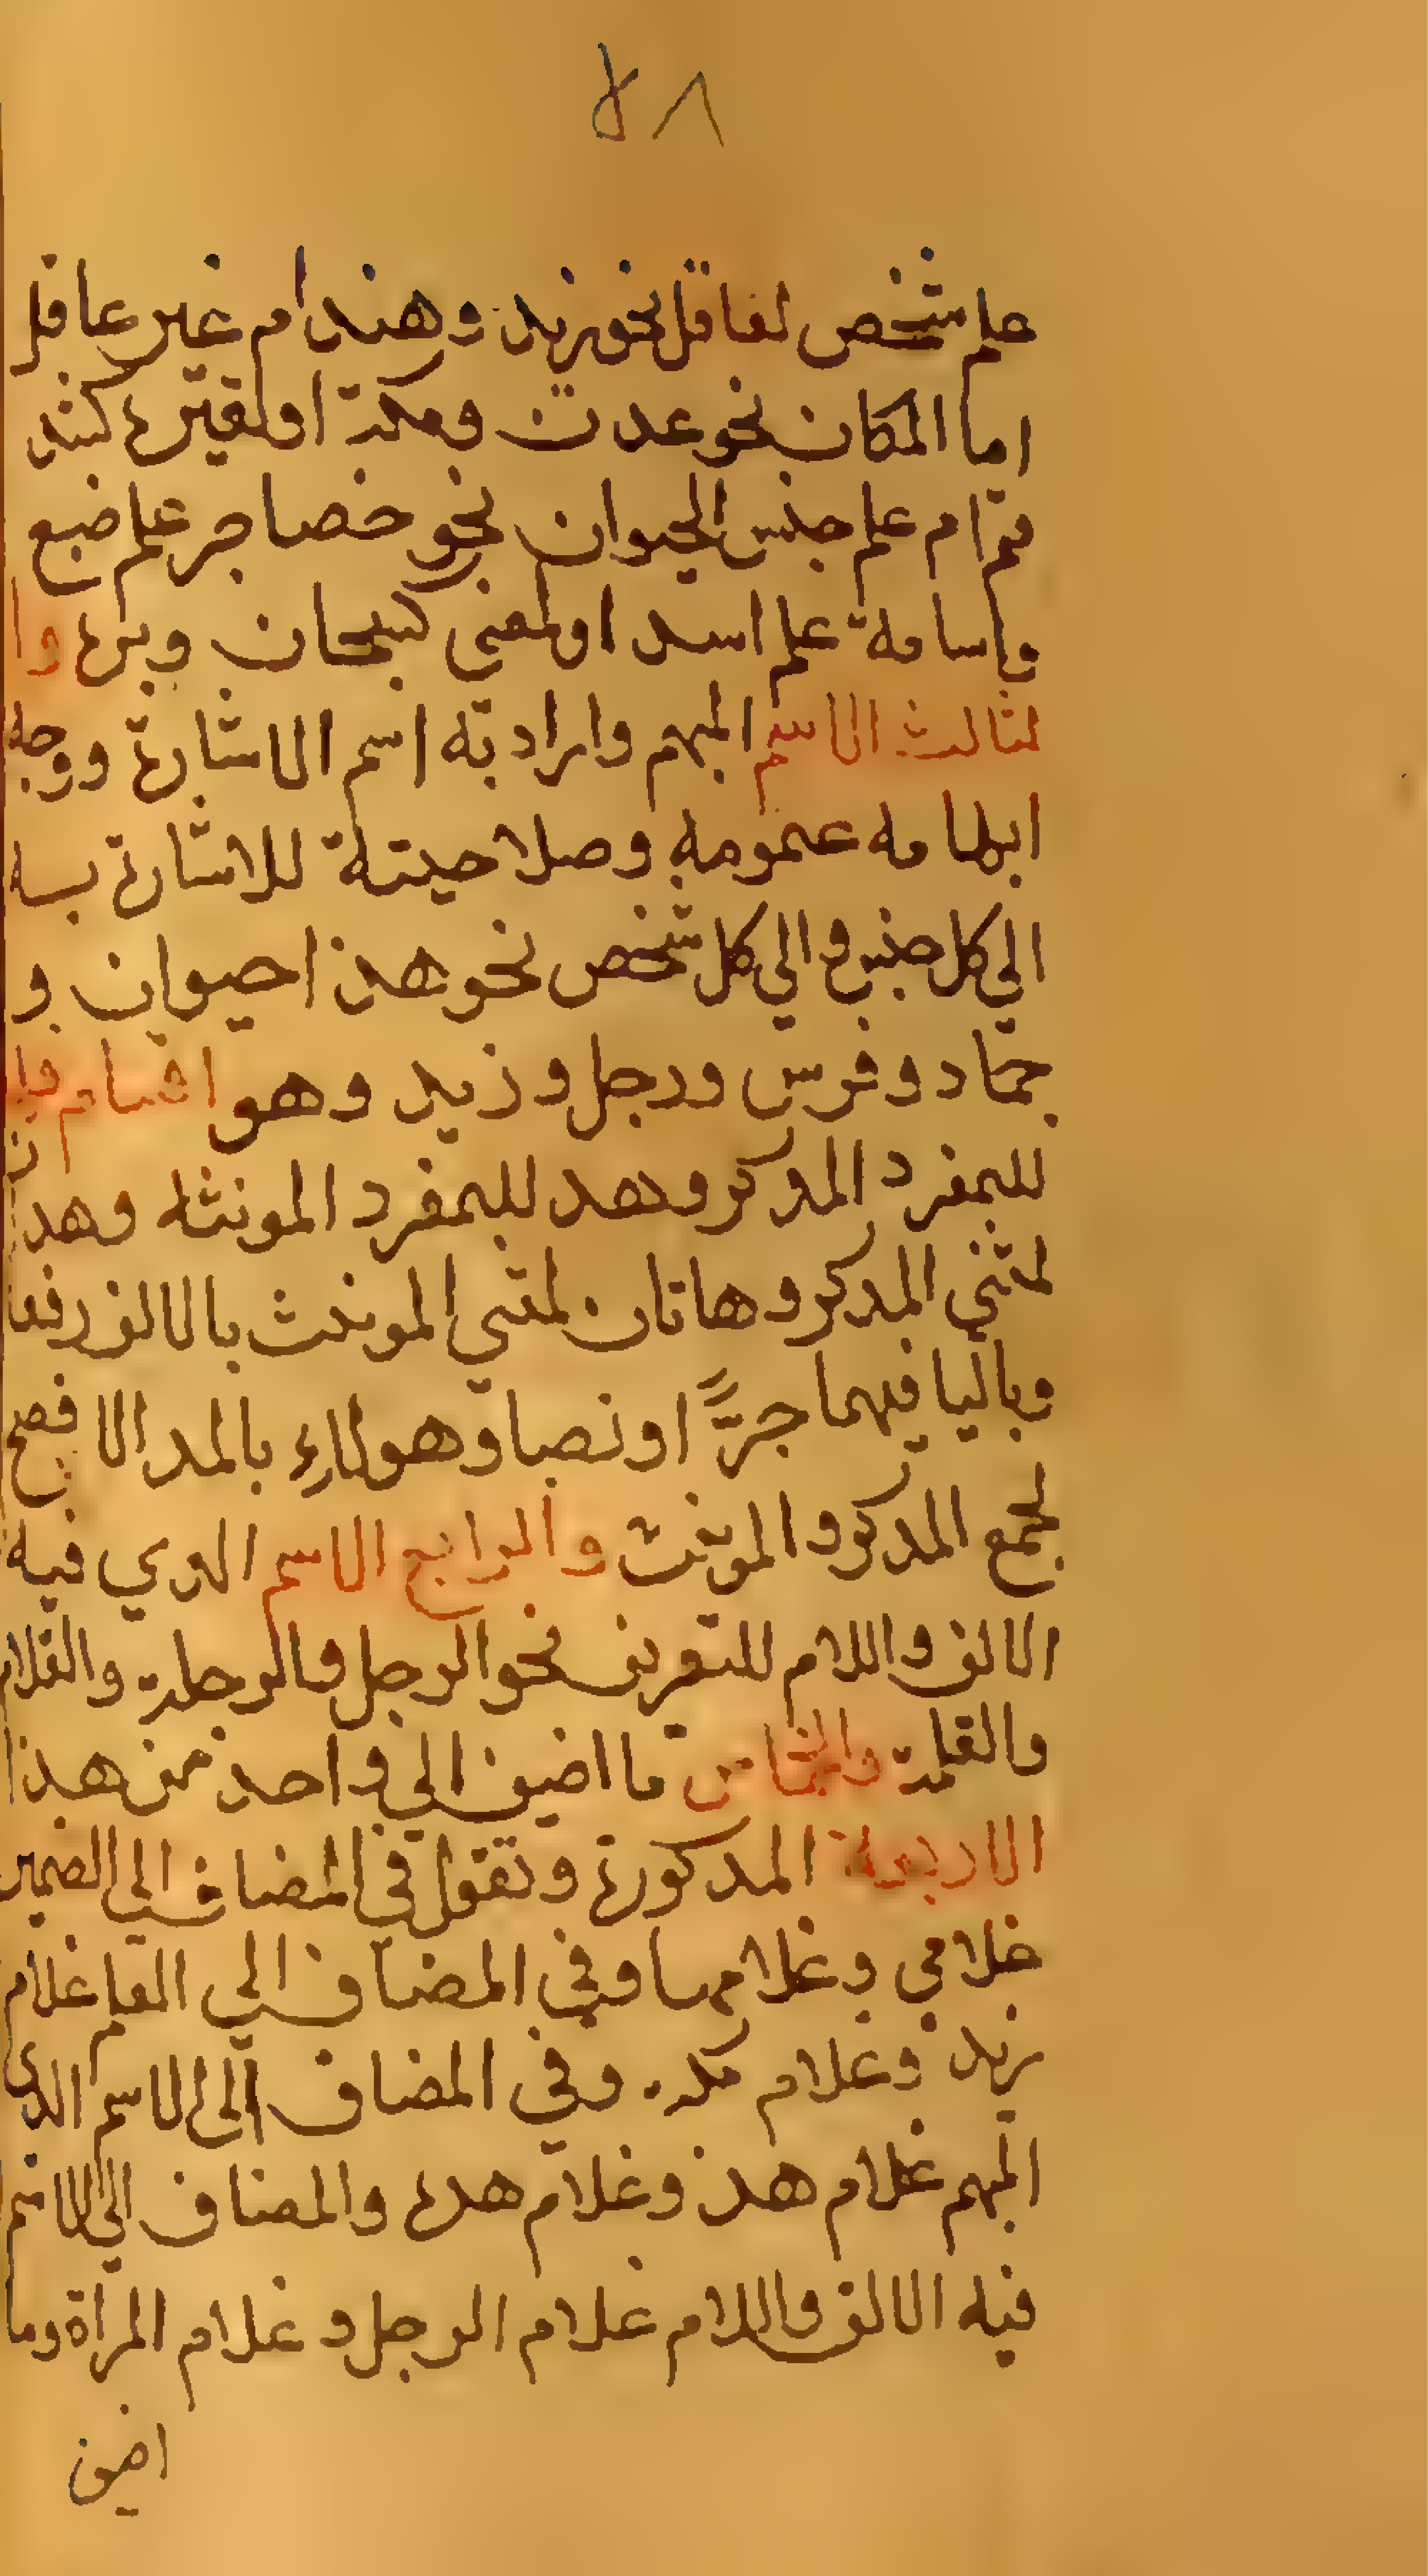 ٤٨
علم شخص لعاقل نحو زيد وهند ام غير عاقل
اما المكان نحو عدن ومكة او لغيره كشد
قم ام علم جنس الحيوان نحو خضاجر علم ضبع
واسامة علم اسد او لمعنى كسبحان وبره وا
لثالث الاسم المبهم واراد به اسم الاشارة ووجه
ابهامه عمومه وصلاحيته للاشارة به
الي كل جنس والي كل شخص نحو هذا حيوان و
جماد وفرس ورجل وزيد وهو اقسام
للمفرد المذكر وهذ للمفرد المونثه وهذ
لمثني المذكر وهاتان لمثني المونث بالالف رفعا
وباليا فيهما جرًّا او نصبا وهولاء بالمد الافصح
لجمع المذكر والمونث والرابع الاسم الدي فيه
الالف واللام للتعريف نحو الرجل والرجلة والغلام
والغلمة والخامس ما اضيف الي واحد من هذا
الاربعة المذكورة وتقول في المضاف الي الضمير
غلامي وغلامها وفي المضاف الي العلم غلام
زيد وغلام مكة وفي المضاف الى الاسم الدي
المبهم غلام هذ وغلام هده والمضاف الي الاسم
فيه الالف واللام غلام الرجل وغلام المراة وما
اضيف